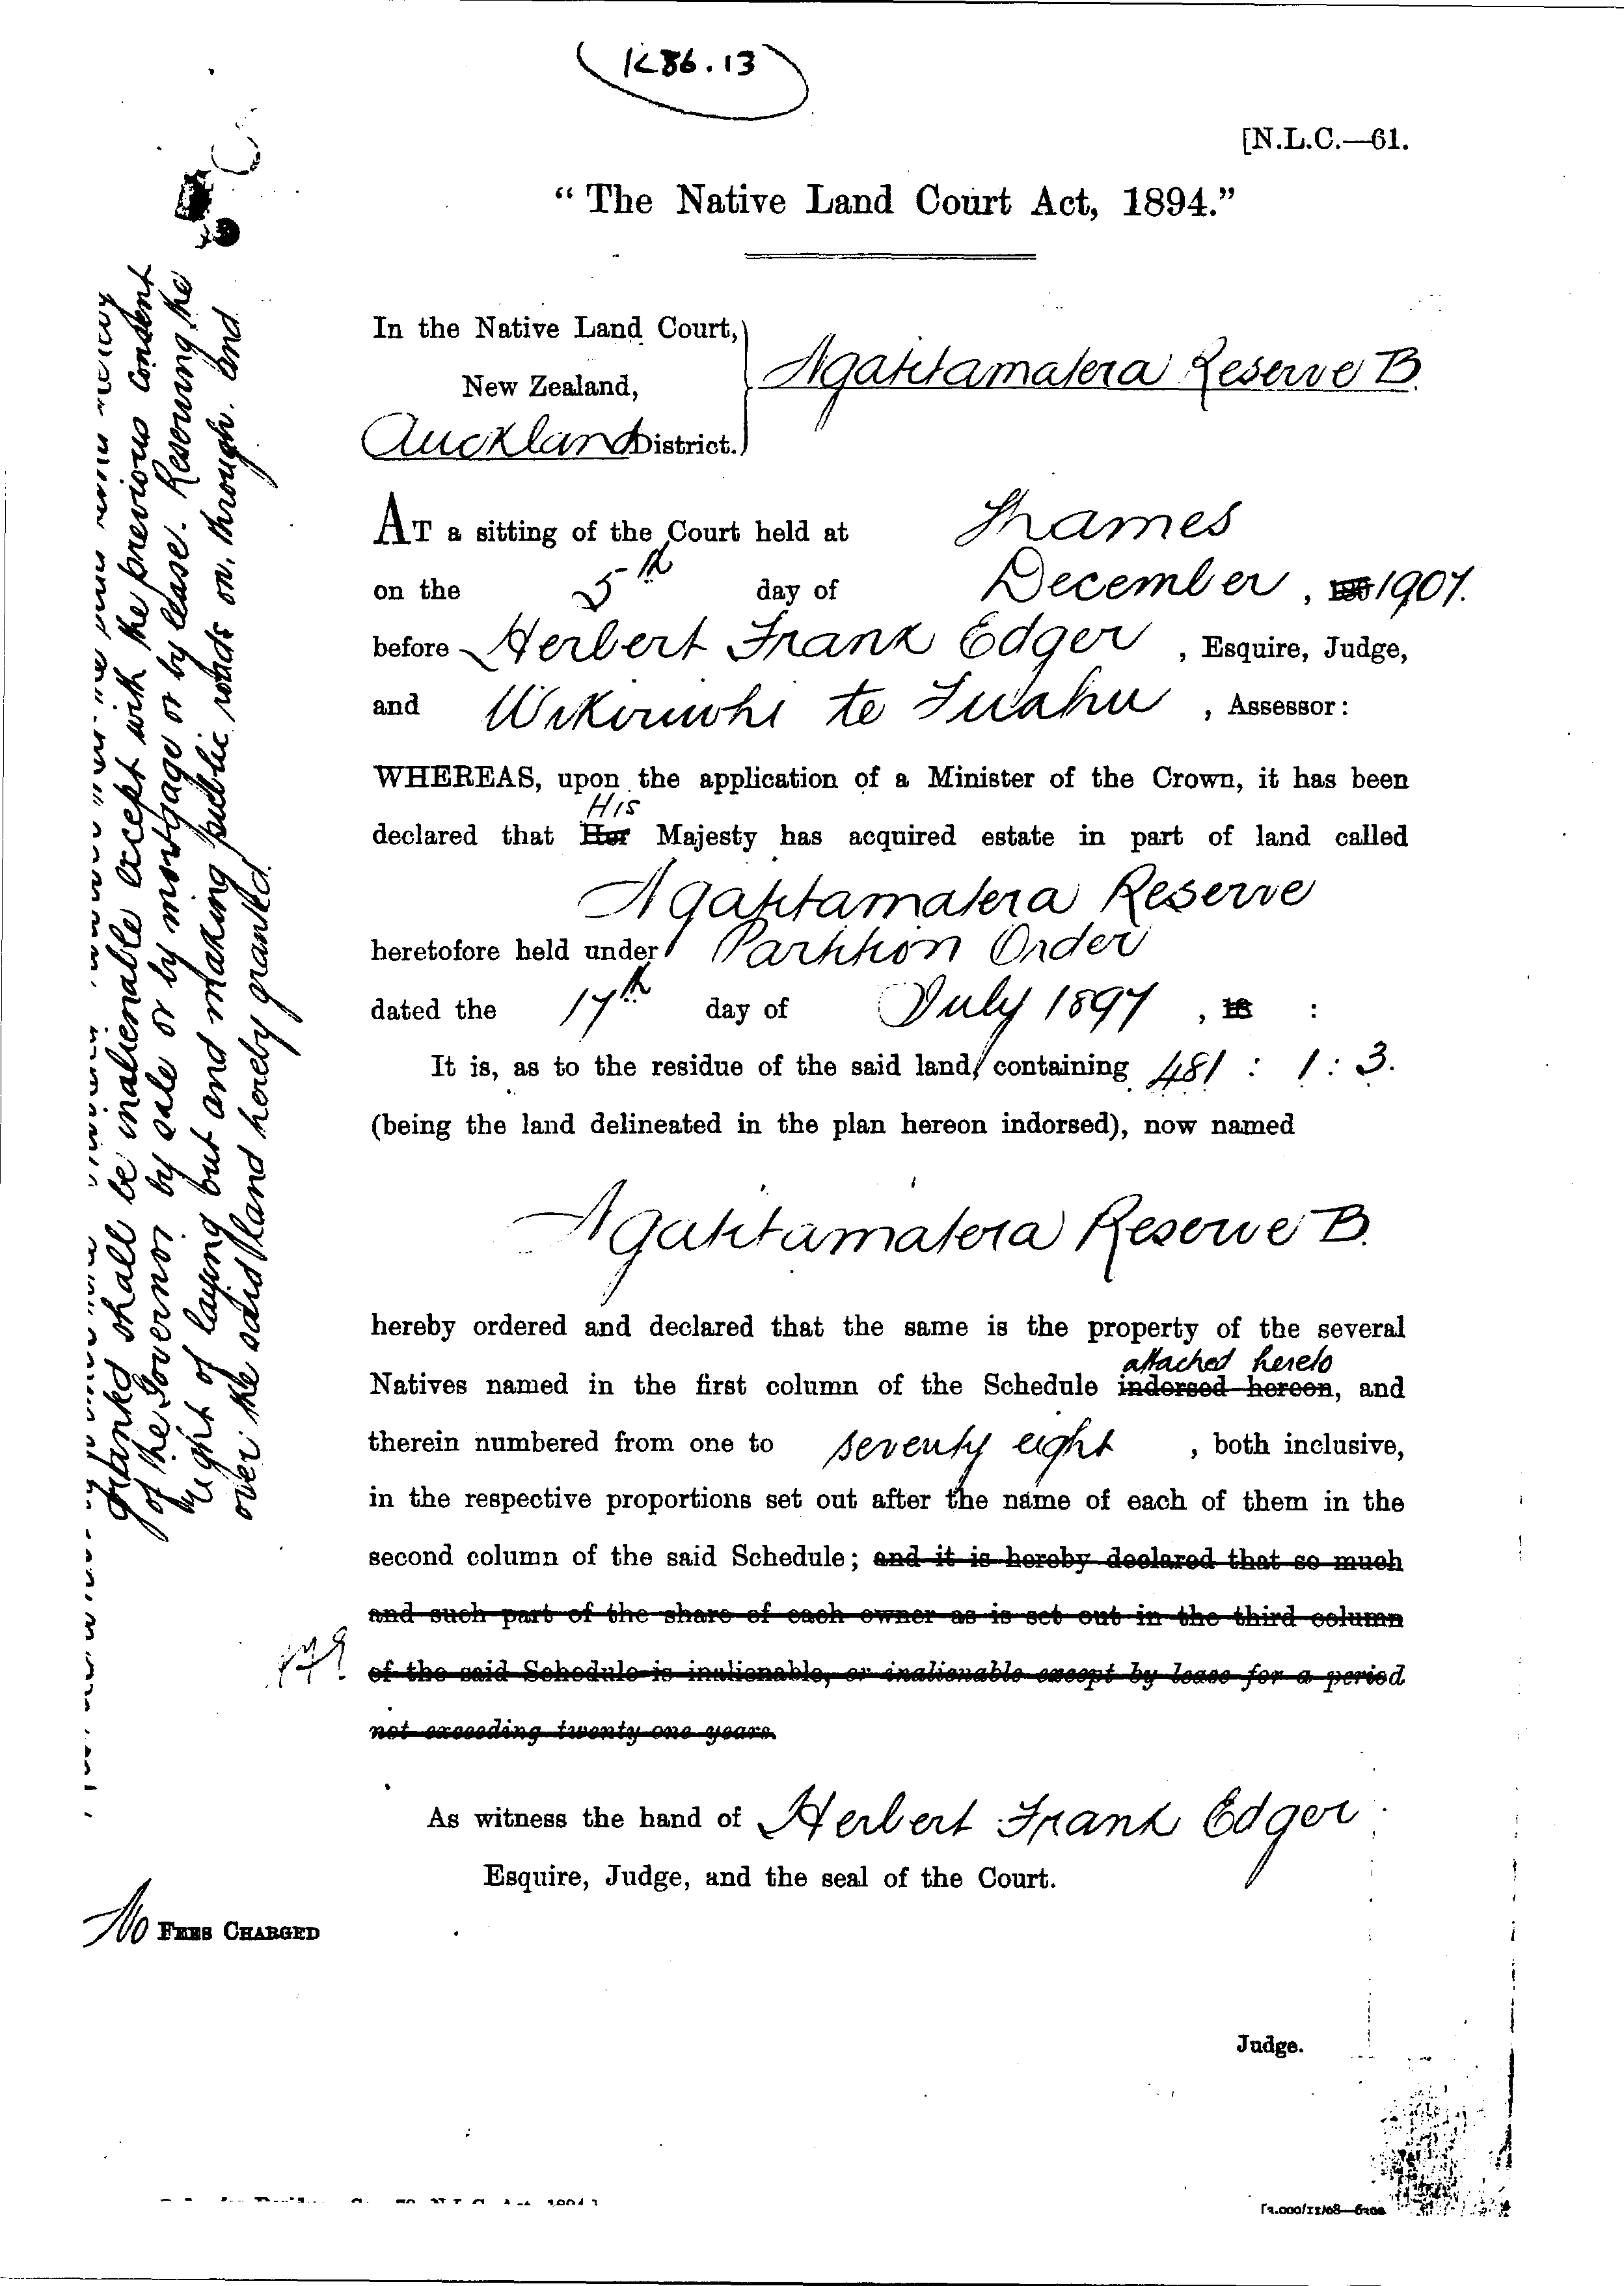 K86.13
[N.L.C.—61.
“The Native Land Court Act, 1894.”
In the Native Land Court,
New Zealand,
Auckland District.
Ngatitamatera Reserve B.
AT a sitting of the Court held at Thames
on the 5th day of December, 190 1907.
before Herbert Frank Edger, Esquire, Judge,
and Wikiriwhi te Tuahu, Assessor:
WHEREAS, upon the application of a Minister of the Crown, it has been
His
declared that Her Majesty has acquired estate in part of land called
Ngatitamatera Reserve
heretofore held under Partition Order
dated the 17th day of July 1897, 18 :
It is, as to the residue of the said land, containing 481 : 1 : 3.
(being the land delineated in the plan hereon indorsed), now named
Ngatitamatera Reserve B.
hereby ordered and declared that the same is the property of the several
attached hereto
Natives named in the first column of the Schedule indorsed hereon, and
therein numbered from one to seventy eight, both inclusive,
in the respective proportions set out after the name of each of them in the
second column of the said Schedule; and it is hereby declared that so much
and such part of the share of each owner as is set out in the third column
of the said Schedule is inalienable, or inalienable except by lease for a period
not exceeding twenty-one years.
As witness the hand of Herbert Frank Edger
Esquire, Judge, and the seal of the Court.
No FEES CHARGED
Judge.
granted shall be inalienable except with the previous consent
of the Governor by sale or by mortgage or by lease. Reserving the
right of laying out and making public roads on, through, and
over the said land hereby granted.